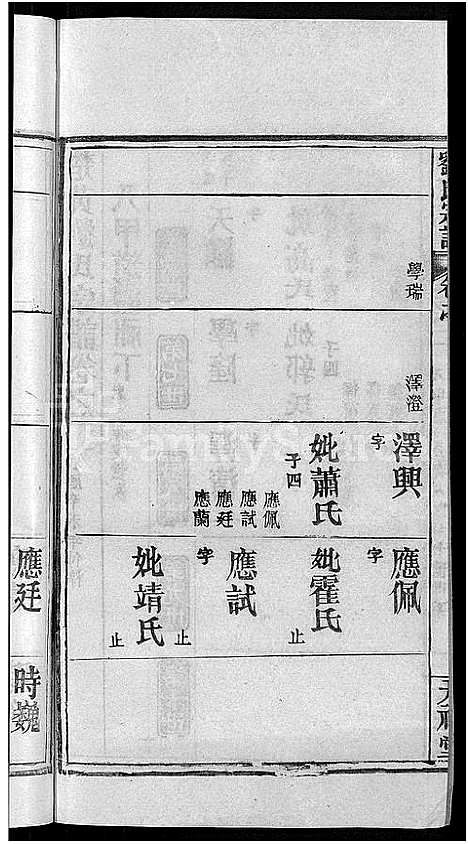 劉氏宗譜
學瑞
澤澄
澤興
字
妣蕭氏
子四
應佩
應試
應廷
應蘭
應佩
字
妣霍氏
止
應試
字
止
妣靖氏
止
應廷
時巍